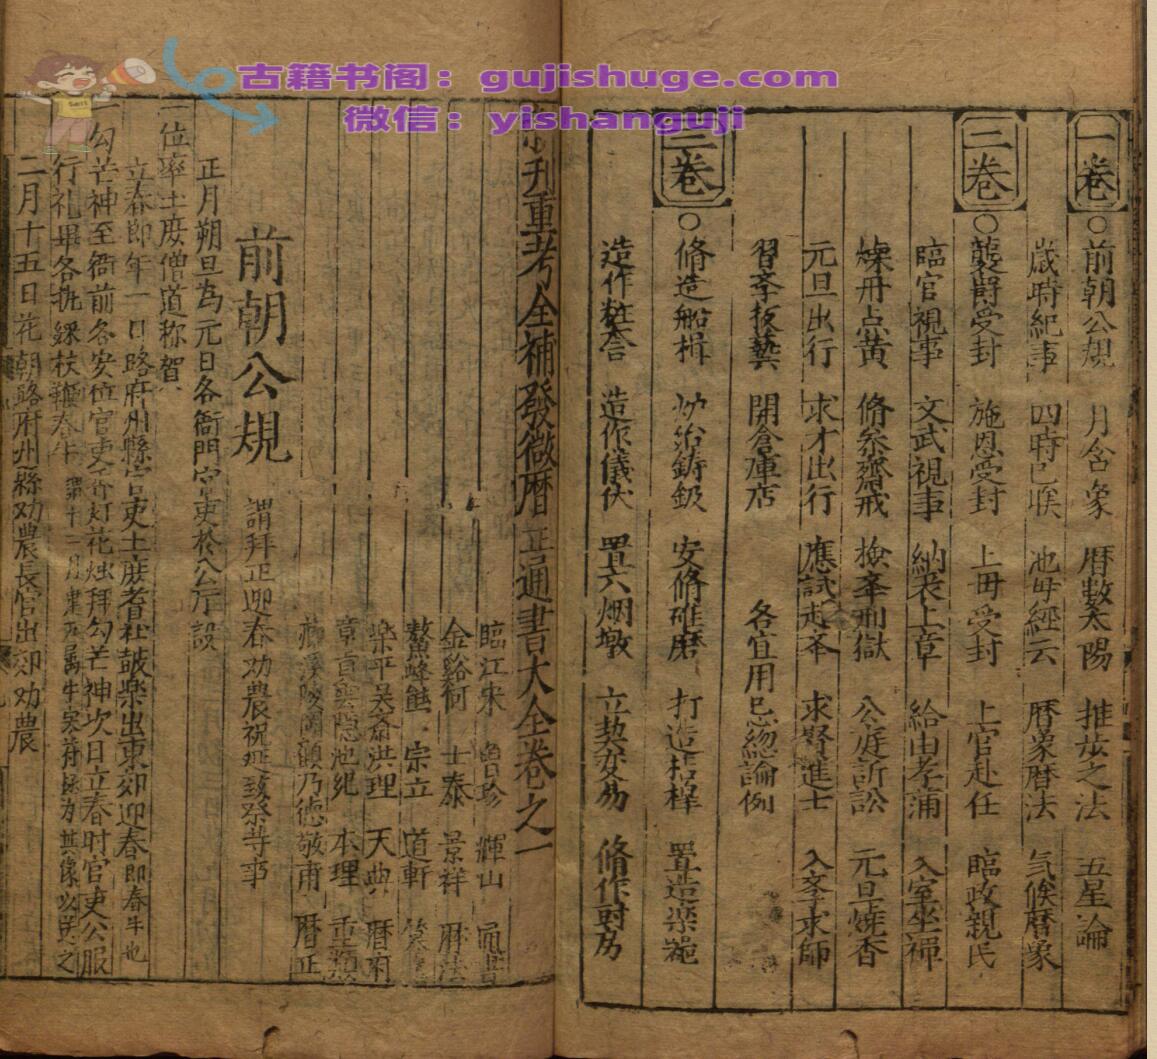 古籍书阁：gujishuge.com
微信：yishanguji
一卷○前朝公規 月含象 暦数太陽 推步之法 五星論
歳時紀事 四時已 池母經云 暦象暦法 气候暦象
二卷○襲爵受封 施恩受封 上毋受封 上官赴任 臨政親民
臨官視事 文武視事 納表上章 給由考 入室坐禅
煉丹点黄 脩叅齋戒 刑獄 公庭訴訟 元旦燒香
元旦出行 求才出行 應試赴 求賢進士 入李求師
習李技藝 開倉庫店 各宜用忌緫論例
三卷○脩造船楫 炉冶鋳 安脩碓磨 打造 置造染
造作粧奩 造作儀仗 置六烟墩 立契交易 脩作厨房
刋重考全補發微暦正通書大全卷之一
臨江宋 魯珍 輝山
金谿何 士泰 景祥 暦法
鰲峰熊 宗立 道軒
樂平 洪理 天典 暦
池紀 本理 重
德敬甫 暦正
前朝公規 謂拜正迎春劝農祝 致祭等事
正月朔旦为元日各衙門官吏於公厅設
位率士庶僧道称賀
立春即年一日路府州縣官吏士庶耆社鼓樂出東郊迎春即春牛也
勾芒神至衙前各安位官吏 灯花烛拜勾芒神次日立春时官吏公服
行礼畢各 杖鞭春牛 十二月 牛 为其像以送之
二月十五日花朝路府州縣劝農長官出郊劝農